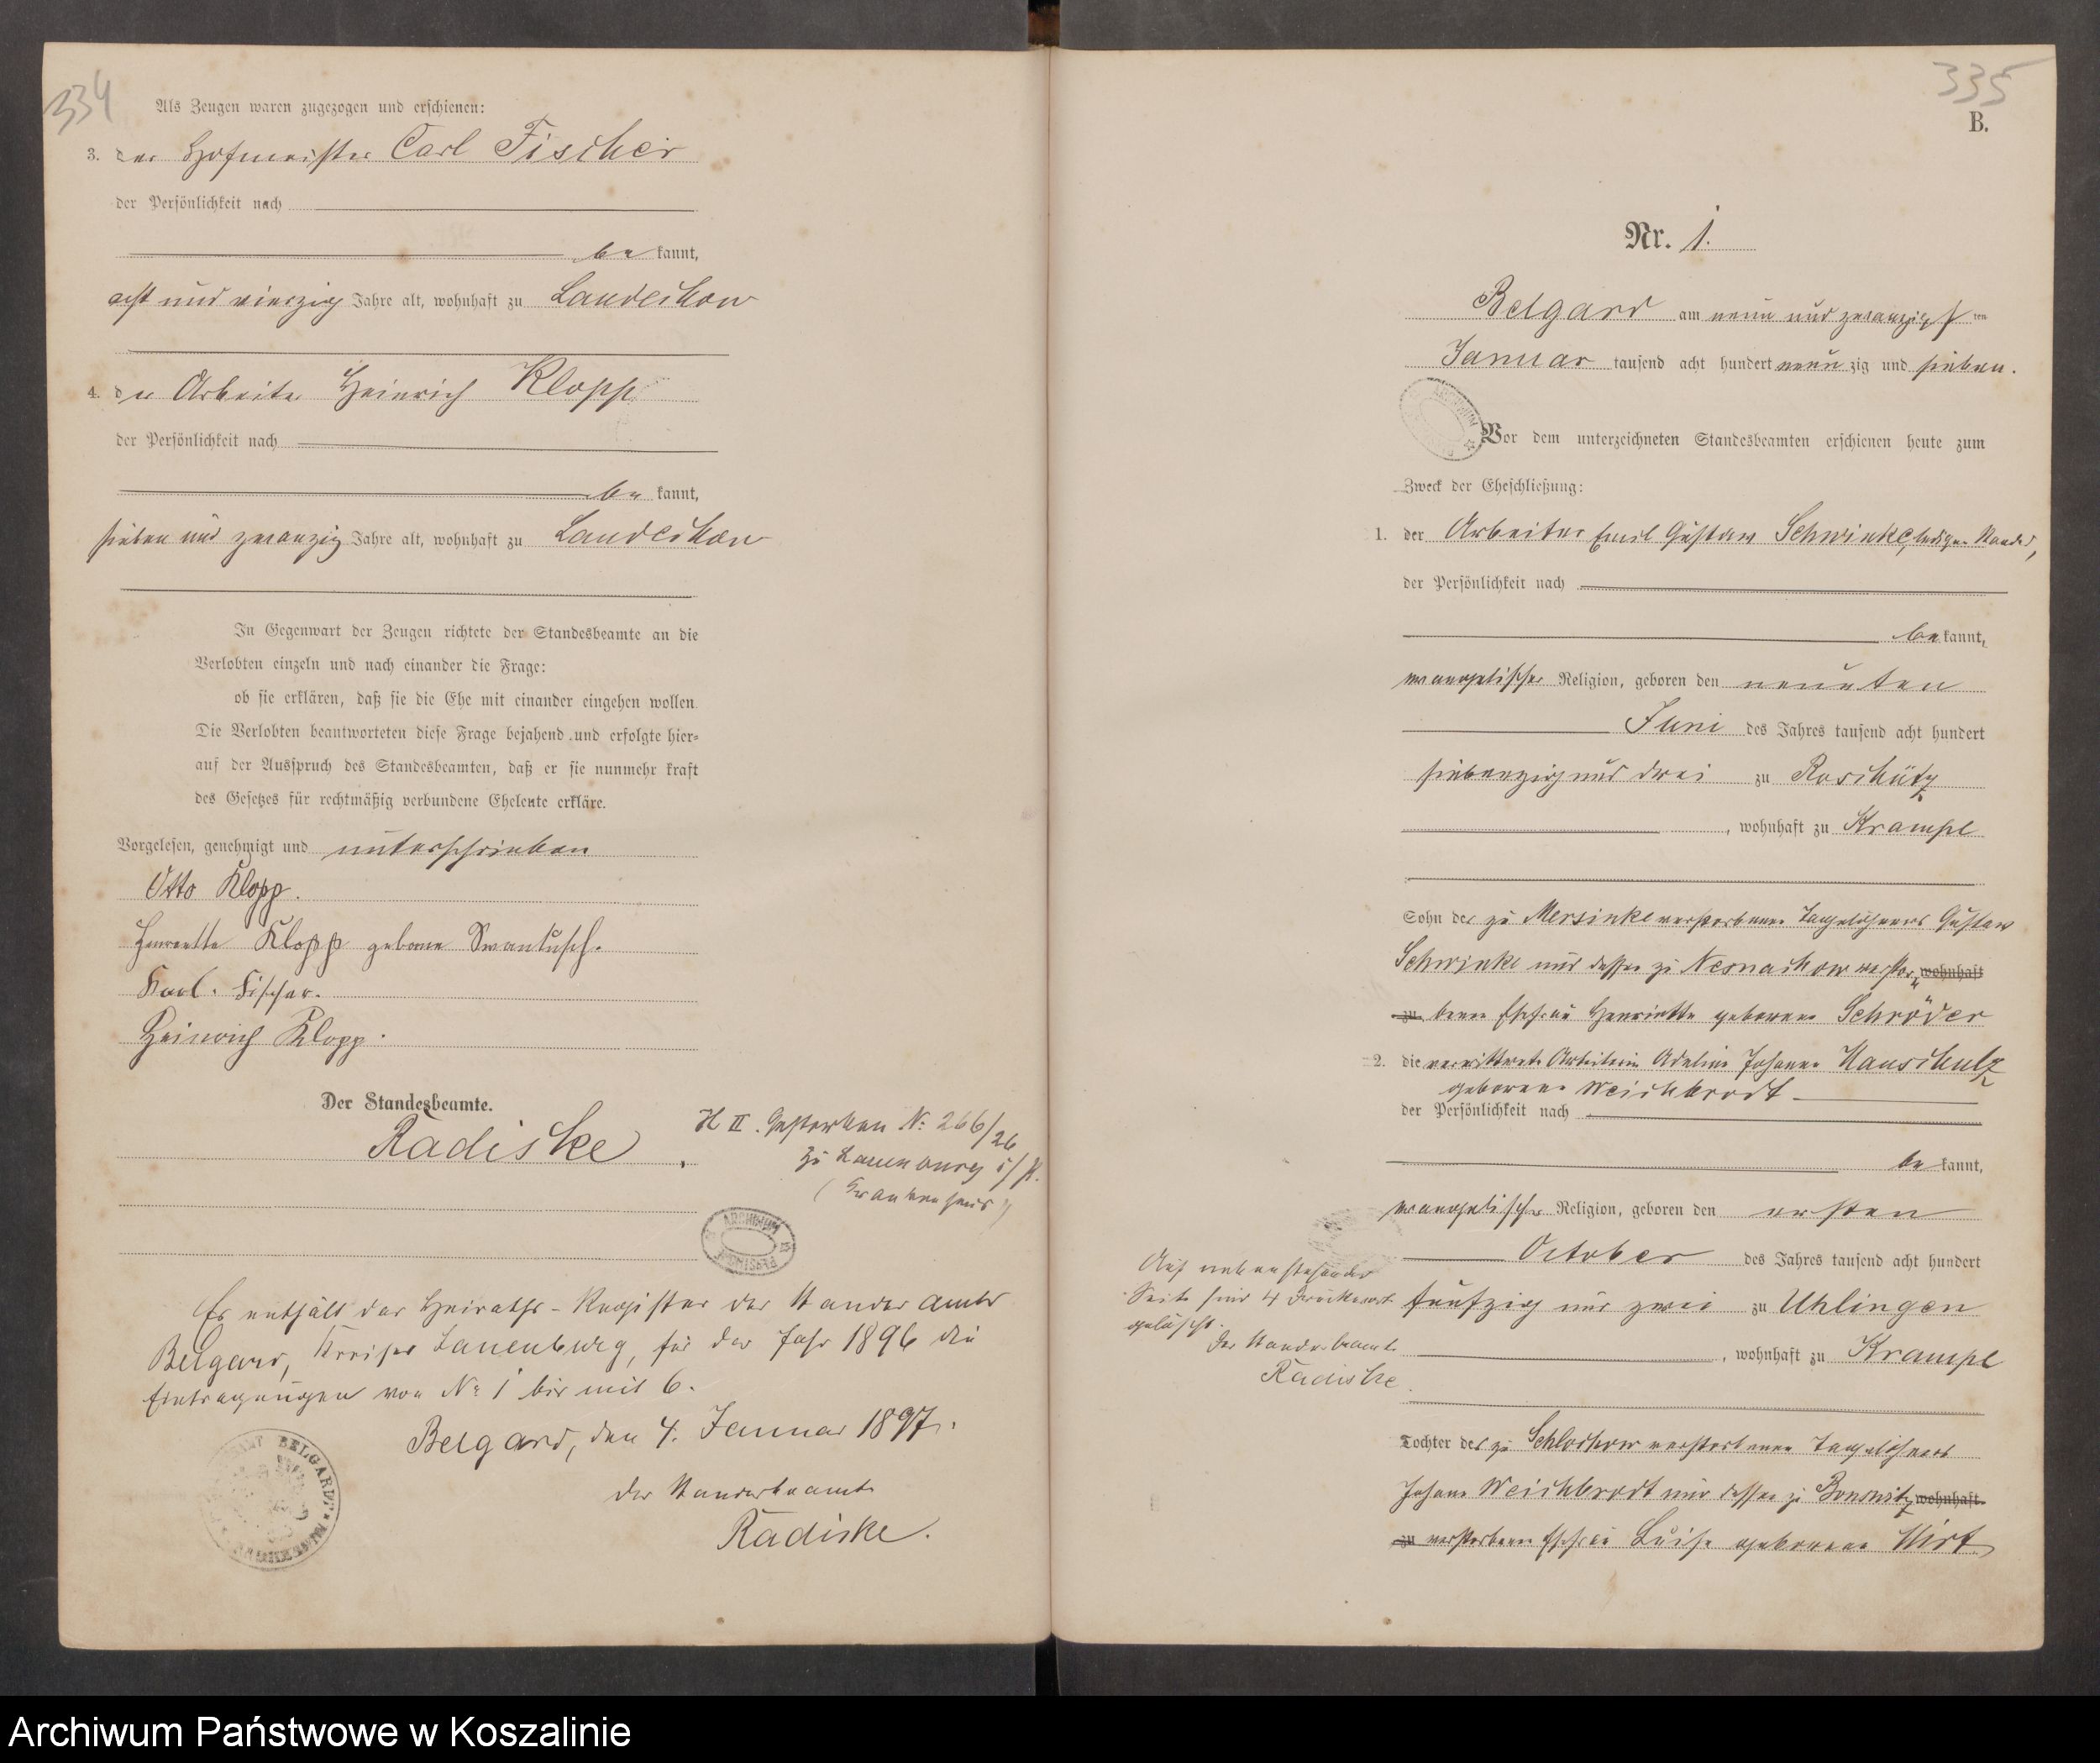 334
Als Zeugen waren zugezogen und erschienen:
3. der Hofmeister Carl Fischer
der Persönlichkeit nach
be kannt,
acht und vierzig Jahre alt, wohnhaft zu Landechow
4. der Arbeiter Heinrich Klopp
der Persönlichkeit nach
be kannt,
sieben und zwanzig Jahre alt, wohnhaft zu Landechow
In Gegenwart der Zeugen richtete der Standesbeamte an die
Verlobten einzeln und nach einander die Frage:
ob sie erklären, daß sie die Ehe mit einander eingehen wollen.
Die Verlobten beantworteten diese Frage bejahend und erfolgte hier=
auf der Ausspruch des Standesbeamten, daß er sie nunmehr kraft
des Gesetzes für rechtmäßig verbundene Eheleute erkläre.
Vorgelesen, genehmigt und unterschrieben
Otto Klopp.
Henreette Klopp geborne Swantusch.
Karl. Fischer.
Heinrich Klopp.
Der Standesbeamte.
Radiske.
H II. Gestorben Nr. 266/26
zu Lauenburg i/P.
(Krankenhaus)
ARCHIWUM
Es enthält das Heiraths-Register des Standesamts
Belgard, Kreises Lauenburg, für das Jahr 1896 die
Eintragungen von Nr 1 bis mit 6.
Belgard, den 4. Januar 1897.
Der Standesbeamte
Radiske.
BELGARD
335
B.
Nr. 1.
Belgard am neun und zwanzigsten
Januar tausend acht hundert neunzig und sieben.
ARCHIWUM
Vor dem unterzeichneten Standesbeamten erschienen heute zum
Zweck der Eheschließung:
1. der Arbeiter Emil Gustav Schwinke, ledigen Standes,
der Persönlichkeit nach
be kannt,
evangelischer Religion, geboren den neunten
Juni des Jahres tausend acht hundert
siebenzig und drei zu Roschütz
, wohnhaft zu Krampe
Sohn des zu Mersinke verstorbenen Tagelöhners Gustav
Schwinke und dessen zu Nesnachow verstor= wohnhaft
zu benen Ehefrau Henriette geborenen Schröder
2. die verwittwete Arbeiterin Adeline Johanne Hauschulz
geborene Weichbrodt
der Persönlichkeit nach
be kannt,
evangelischer Religion, geboren den ersten
October des Jahres tausend acht hundert
fünfzig und zwei zu Uhlingen
, wohnhaft zu Krampe
Auf nebenstehender
Seite sind 4 Druckworte
gelöscht.
Der Standesbeamte
Radiske.
Tochter des zu Schlochow verstorbenen Tagelöhners
Johann Weichbrodt und dessen zu Bonswitz wohnhaft
zu verstorbenen Ehefrau Luise geborenen Hirt
Archiwum Państwowe w Koszalinie